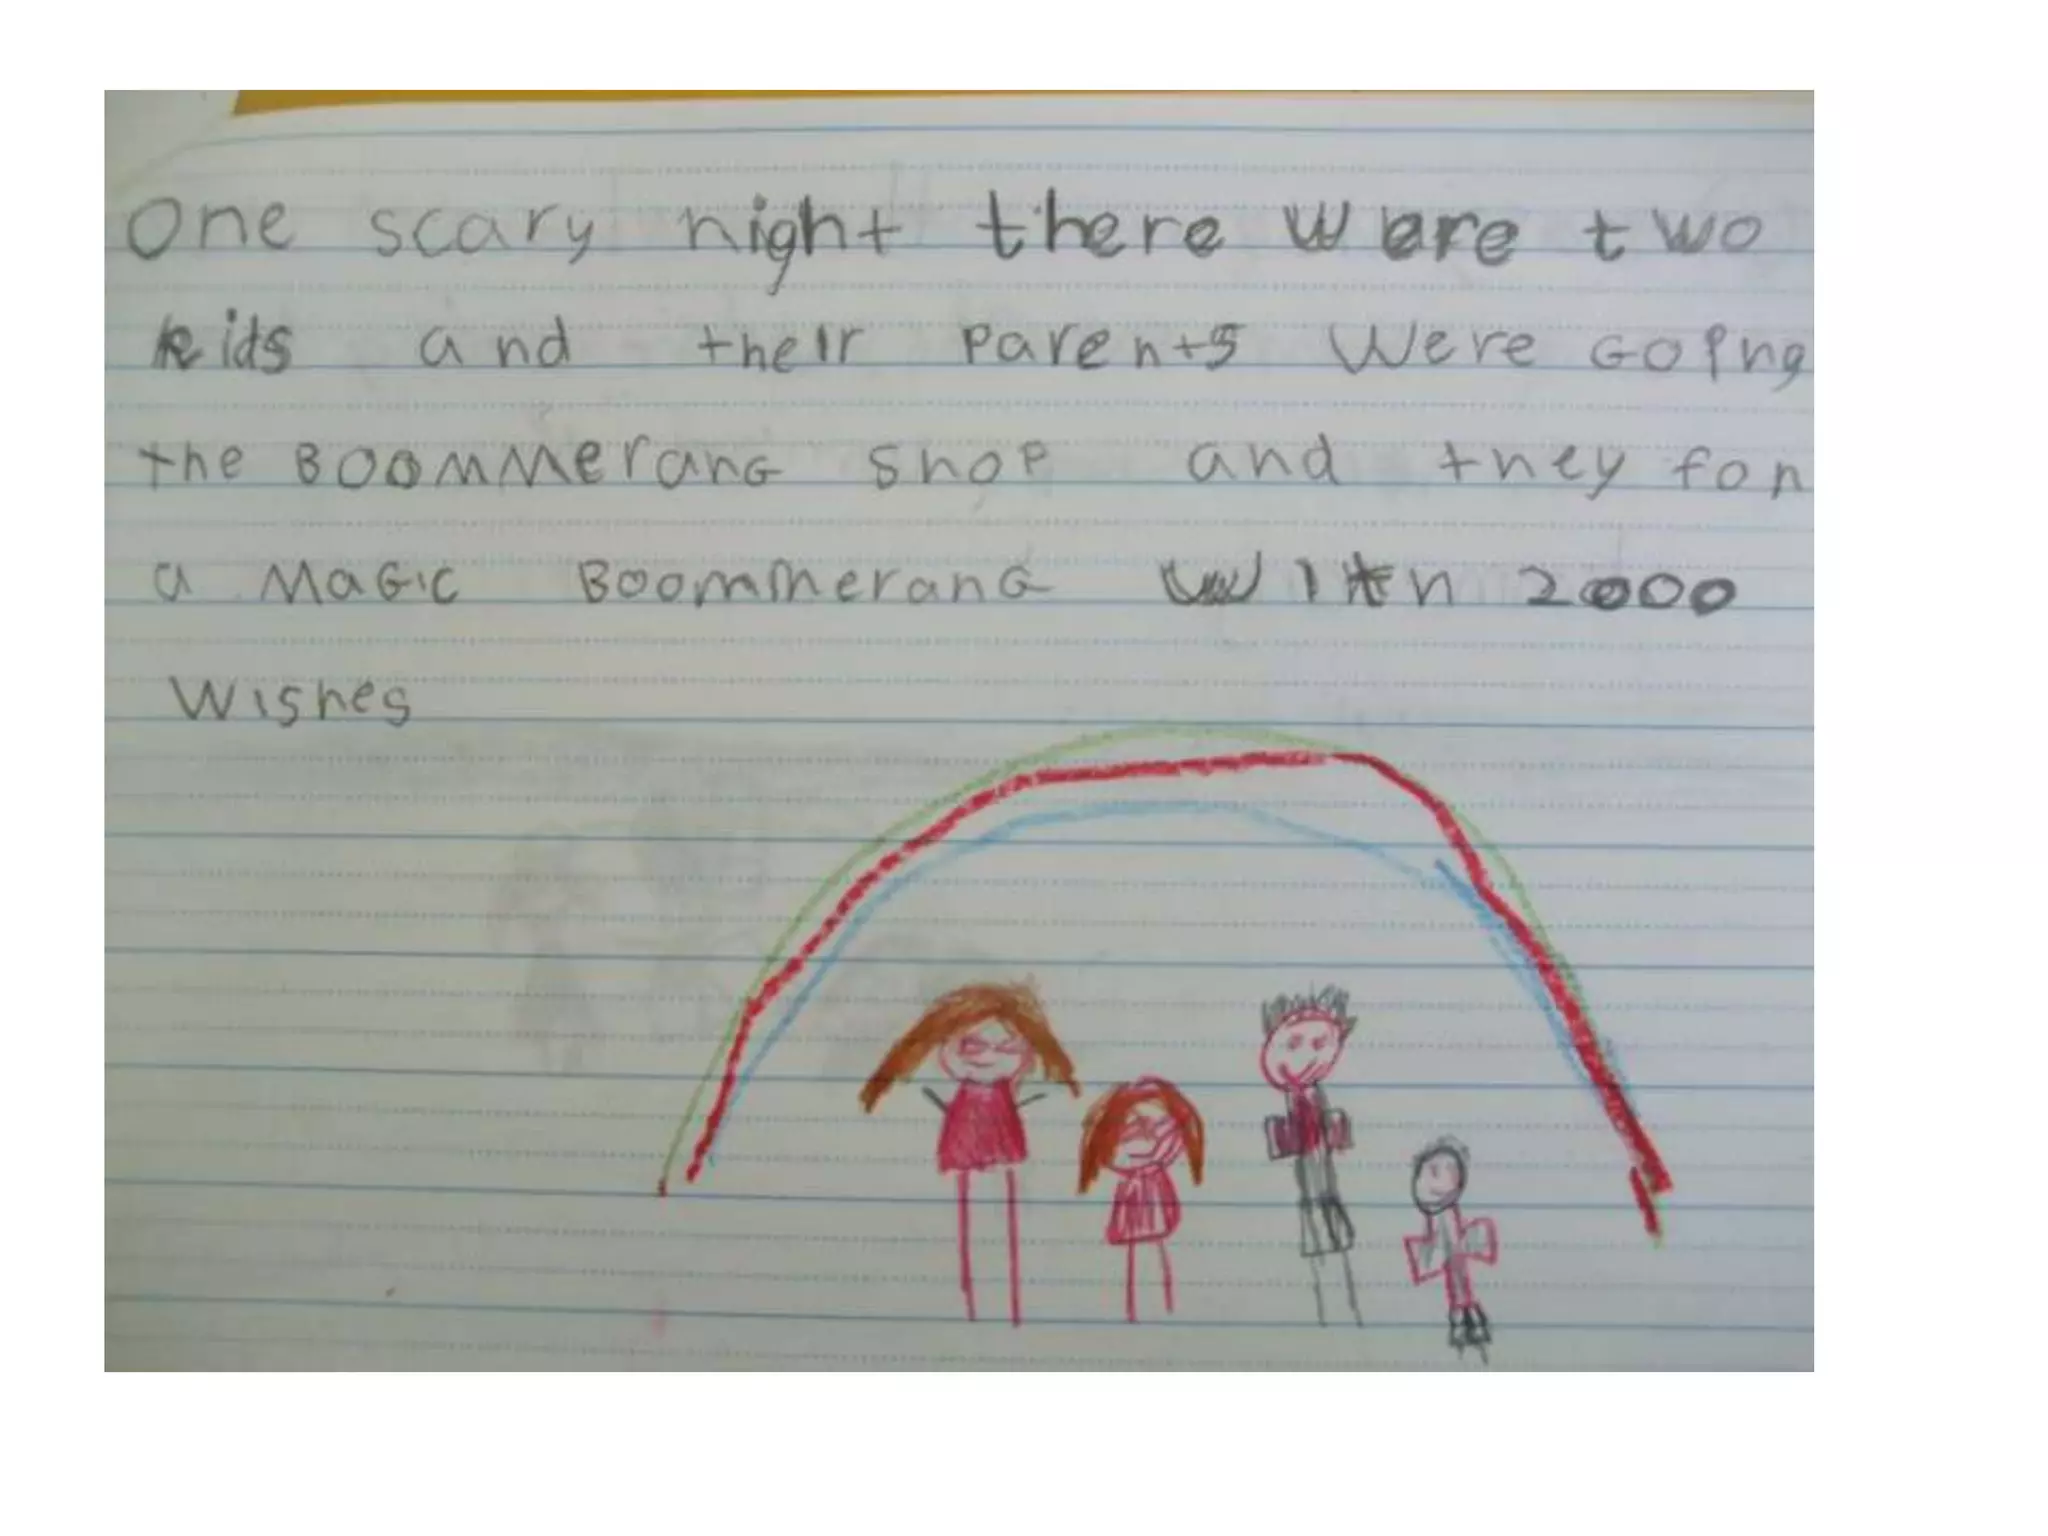 One scary night there were two
kids and their parents were GOing
the BOOMMeranG shop and they fon
a MaGic BoommeranG with 2000
Wishes